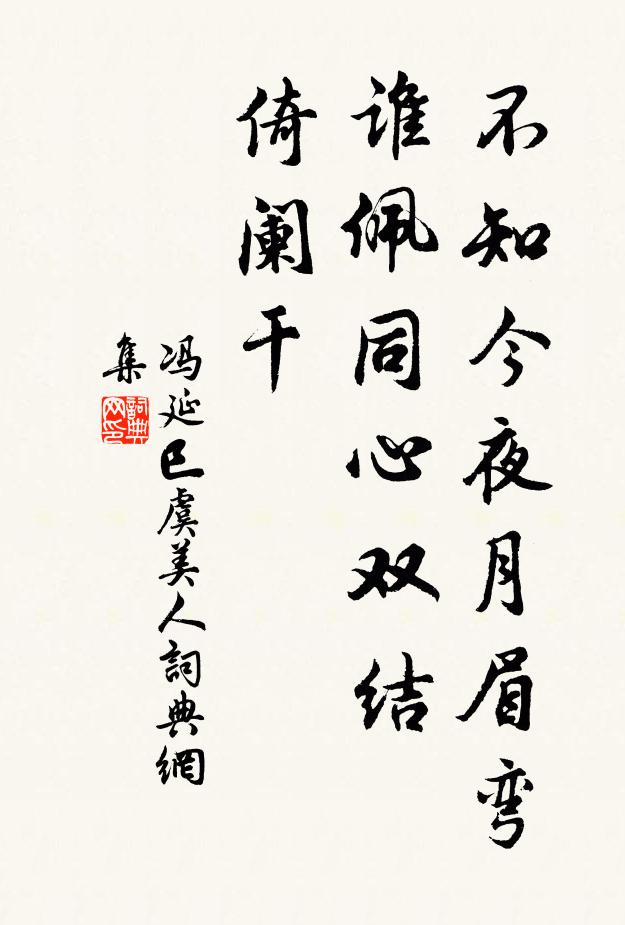 不知今夜月眉弯
谁佩同心双结
倚阑干
冯延巳虞美人詞典網
集
詞典
网印